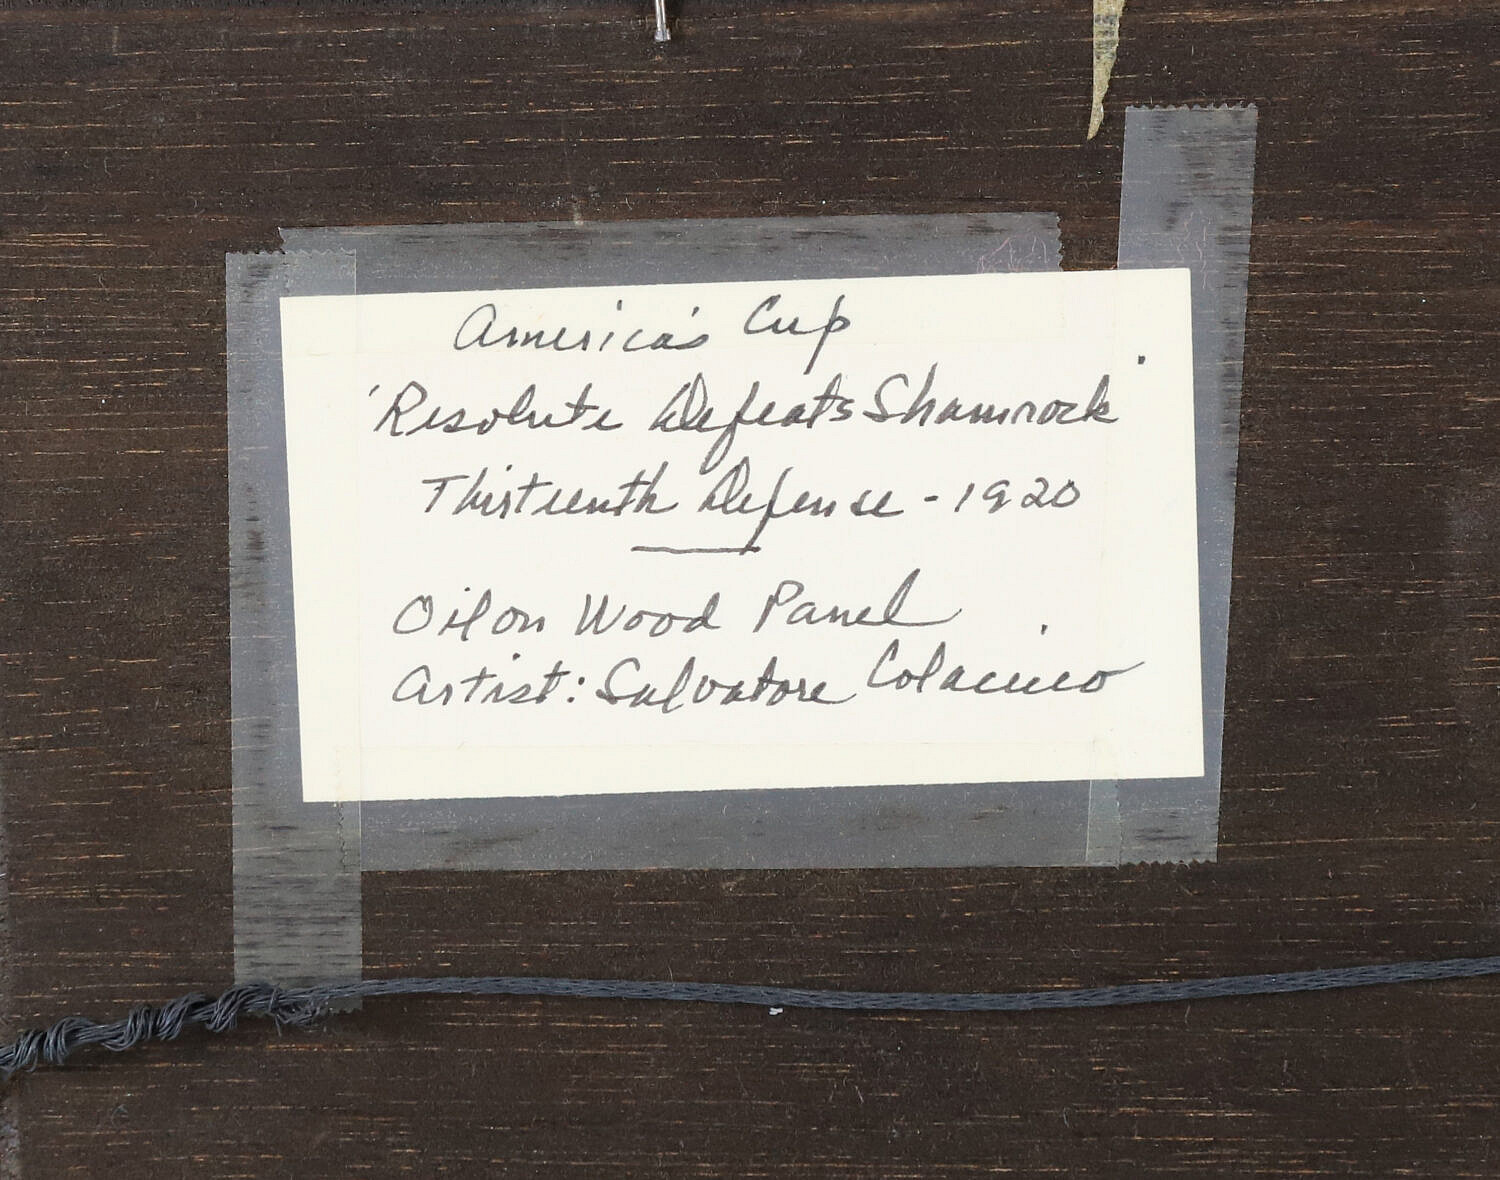 America's Cup
'Resolute Defeats Shamrock'
Thirteenth Defense - 1920
Oil on Wood Panel
Artist: Salvatore Colacino